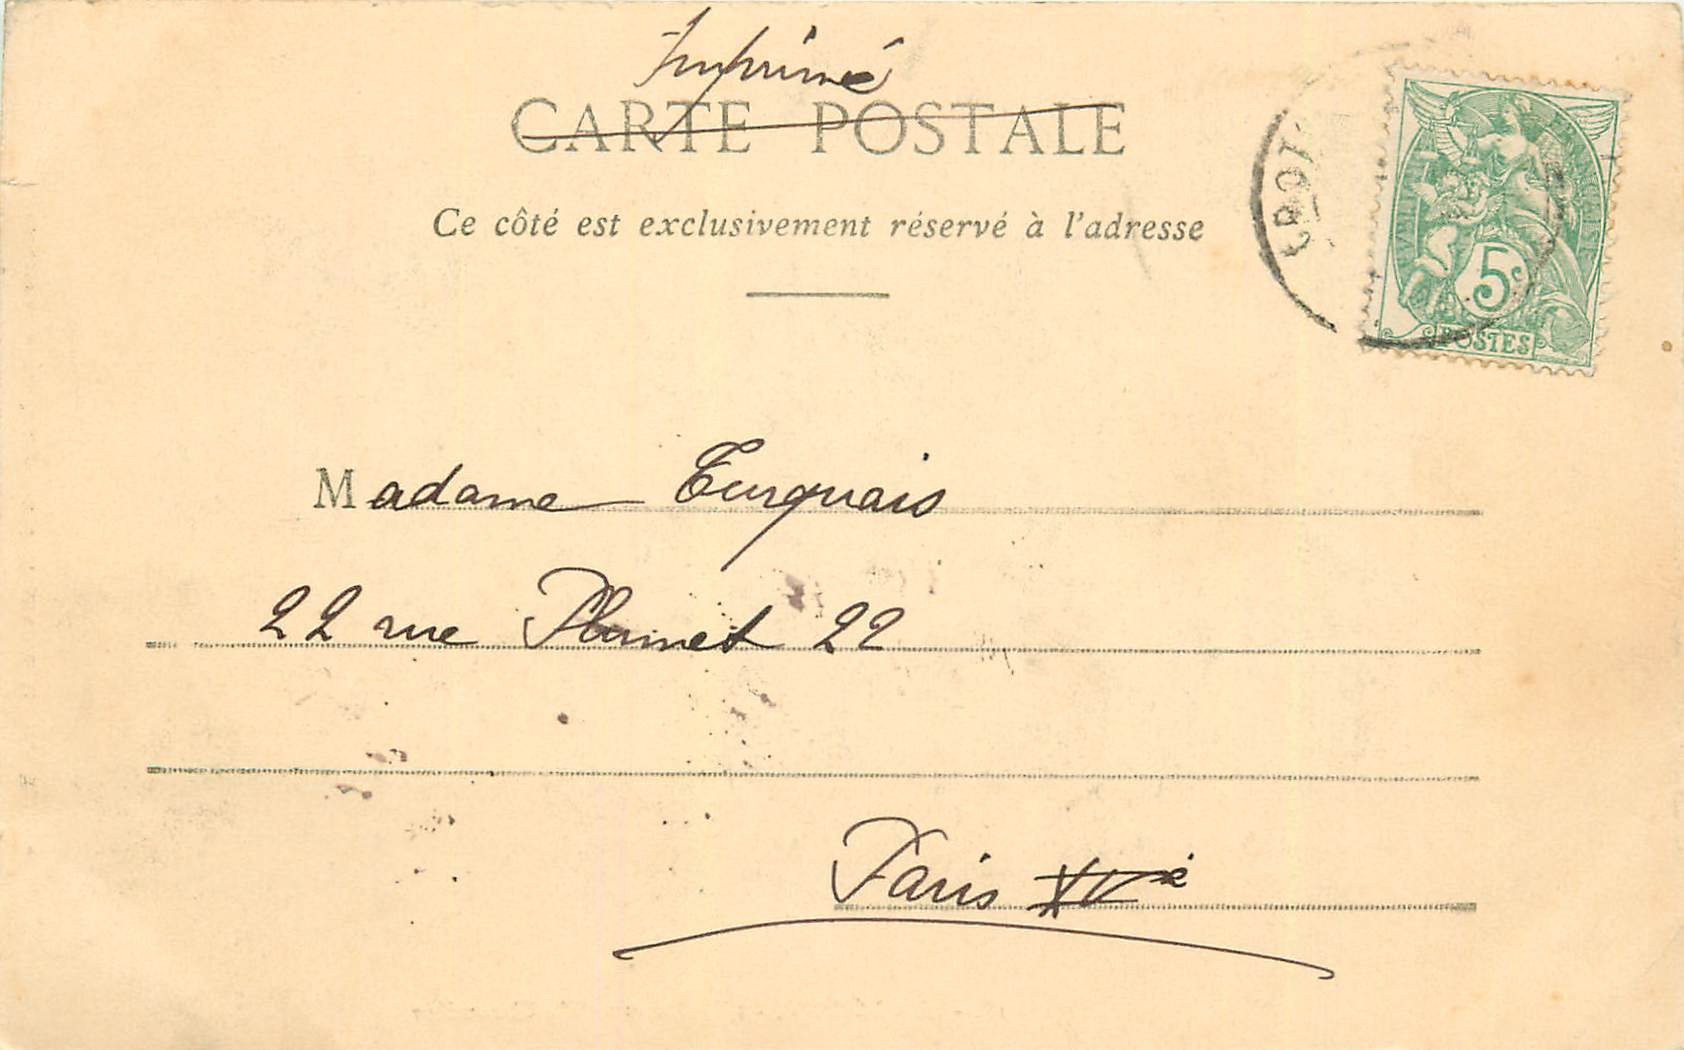 Imprimé
CARTE POSTALE
Ce côté est exclusivement réservé à l'adresse
5c
POSTES
Madame Turquais
22 rue Plumet 22
Paris XVe